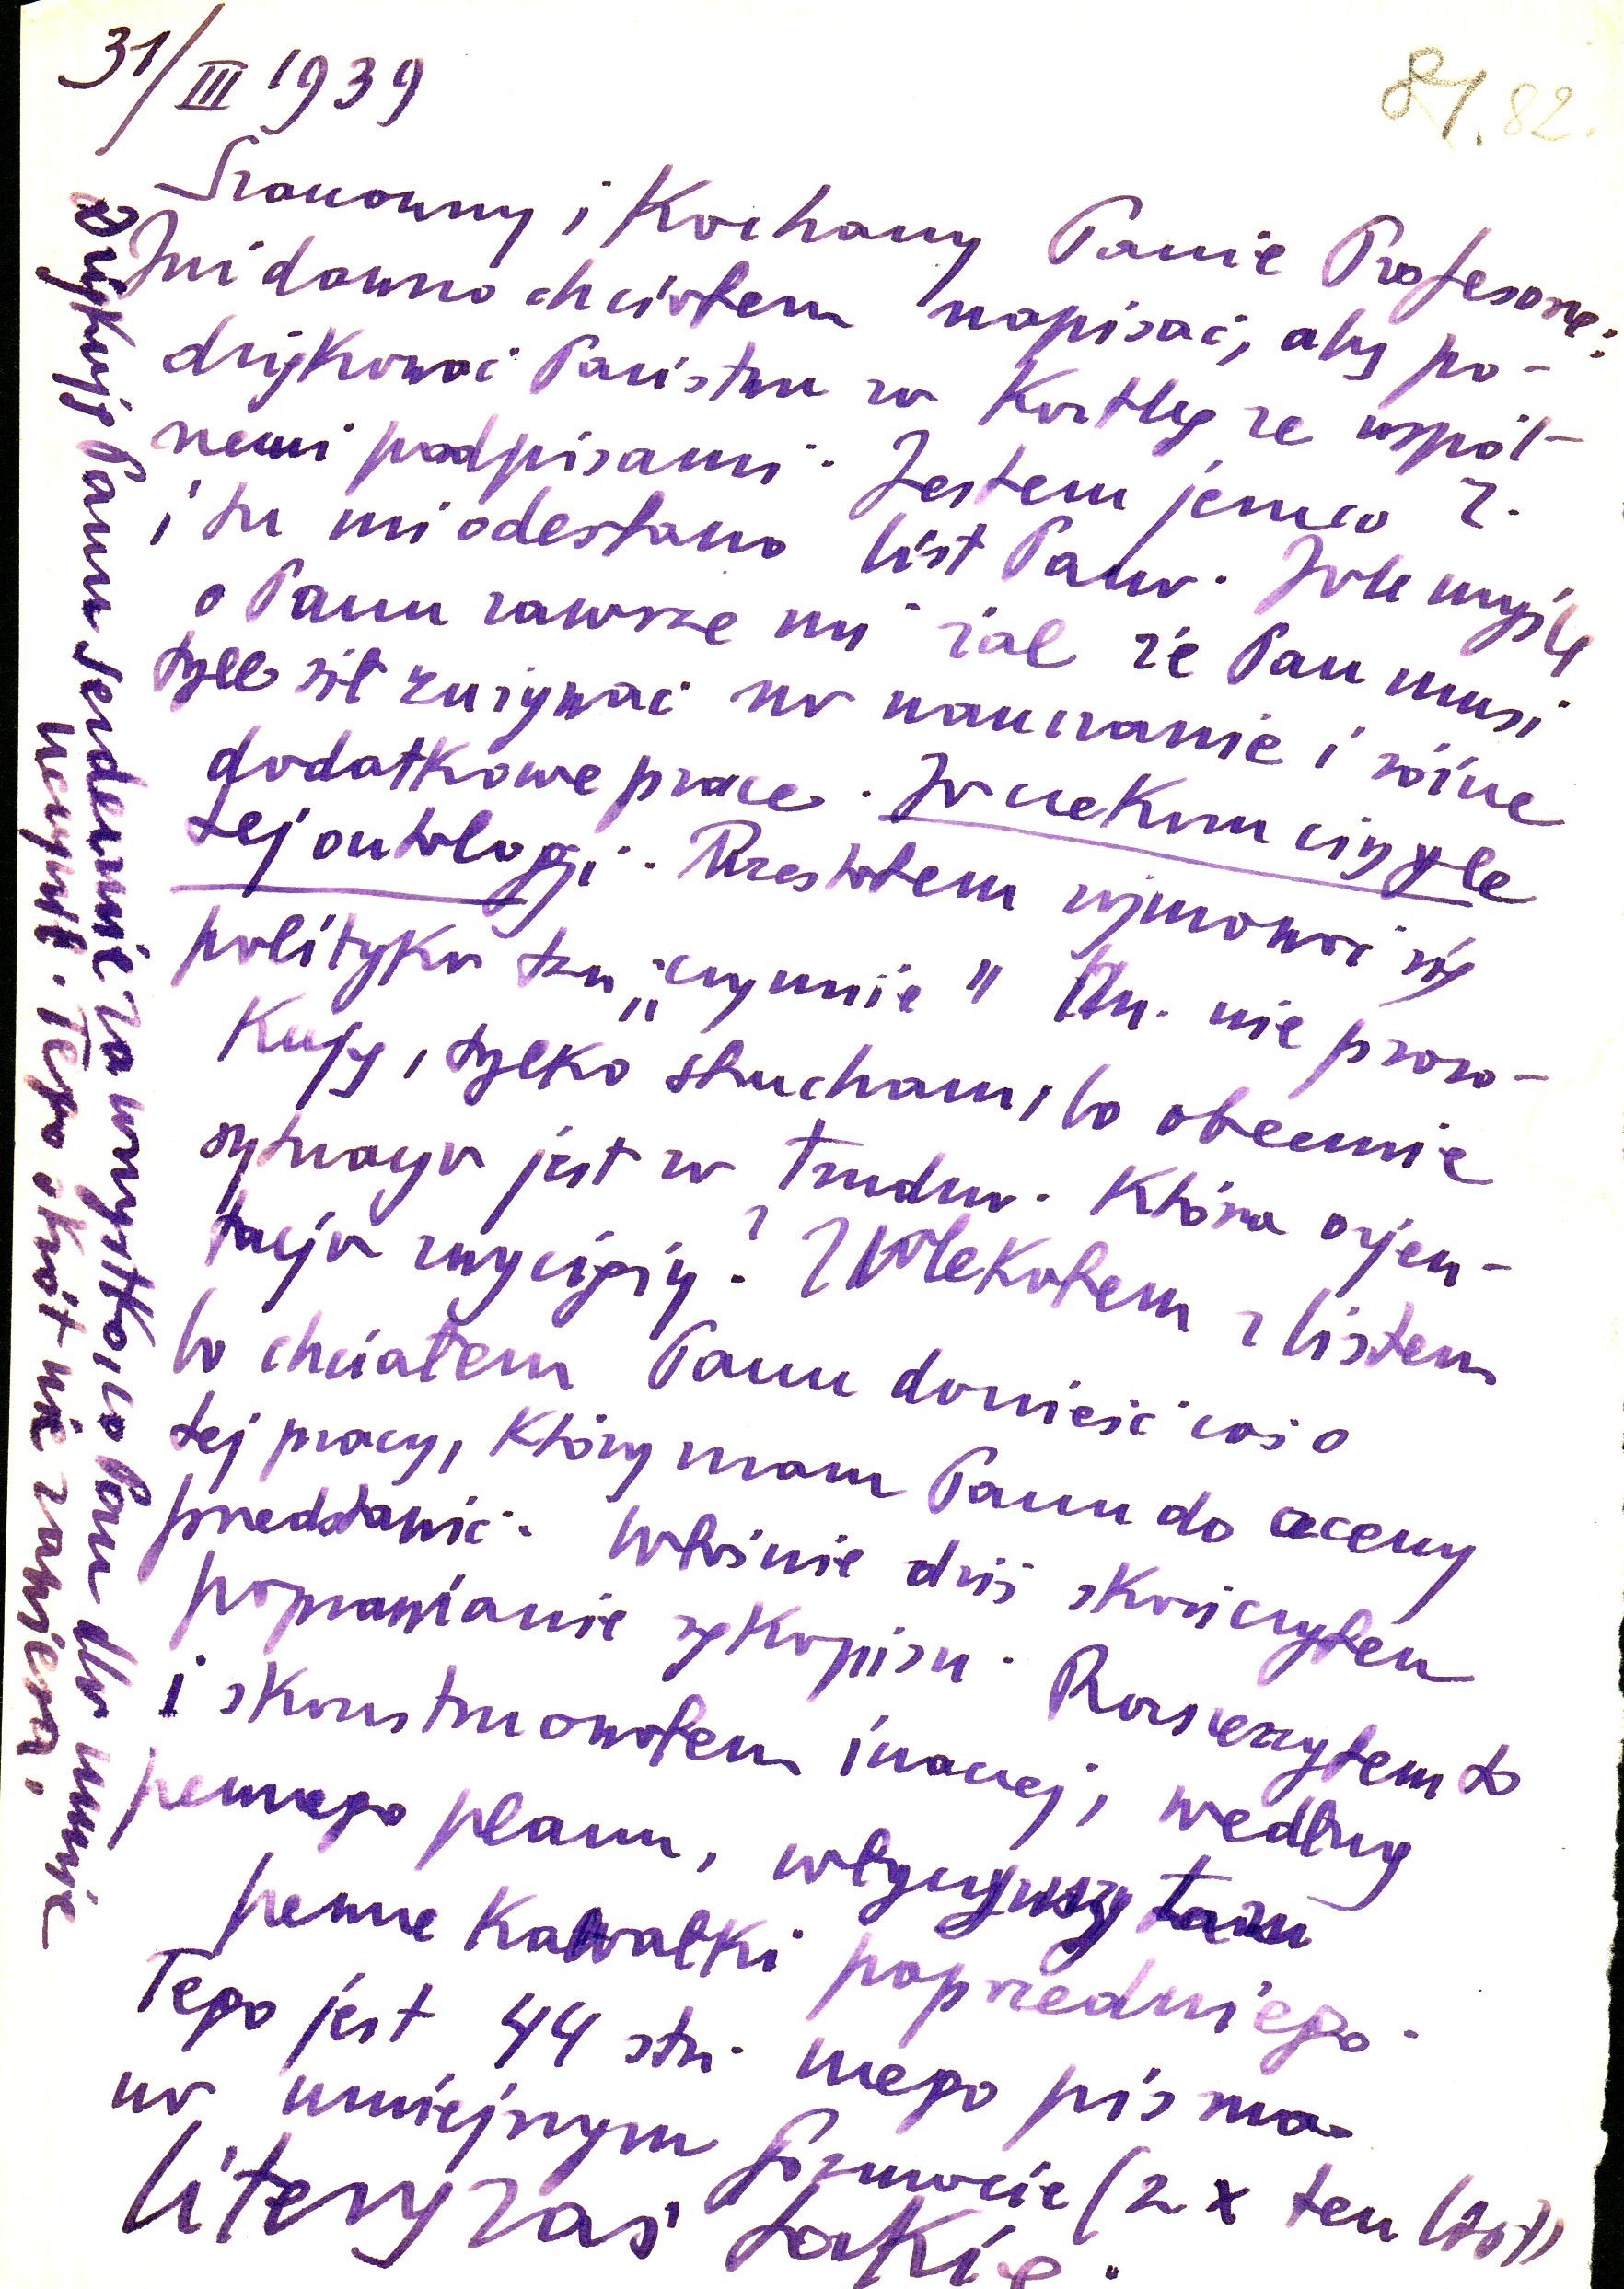 31/III 1939
81. 82.
Szanowny i Kochany Panie Profesorze:
Już dawno chciałem napisać, aby po-
dziękować Państwu za Kartkę ze współ-
nemi podpisami. Jestem jeszcze Z.
i tu mi odesłano list Pana. Jak myślę
o Panu zawsze mi żal że Pan musi
tyle sił zużywać na nauczanie i różne
dodatkowe prace. Ja czekam ciągle
tej ontologji. Przestałem zajmować się
polityką tzn „czynnie” tzn. nie proro-
kuję, tylko słucham, bo obecnie
sytuacja jest za trudna. Która orjen-
tacja zwycięży? Zwlekałem z listem
bo chciałem Panu donieść coś o
tej pracy, którą mam Panu do oceny
przedstawić. Właśnie dziś skończyłem
poprawianie rękopisu. Rozszerzyłem to
i skonstruowałem inaczej, według
pewnego planu, włączywszy tam
pewne kawałki poprzedniego.
Tego jest 44 str. mego pisma
na mniejszym formacie (2 x ten list)
litery zaś takie.
Dziękuję Panu serdecznie za wszystko, co Pan dla mnie
uczynił. Tego skrót nie zawiera.